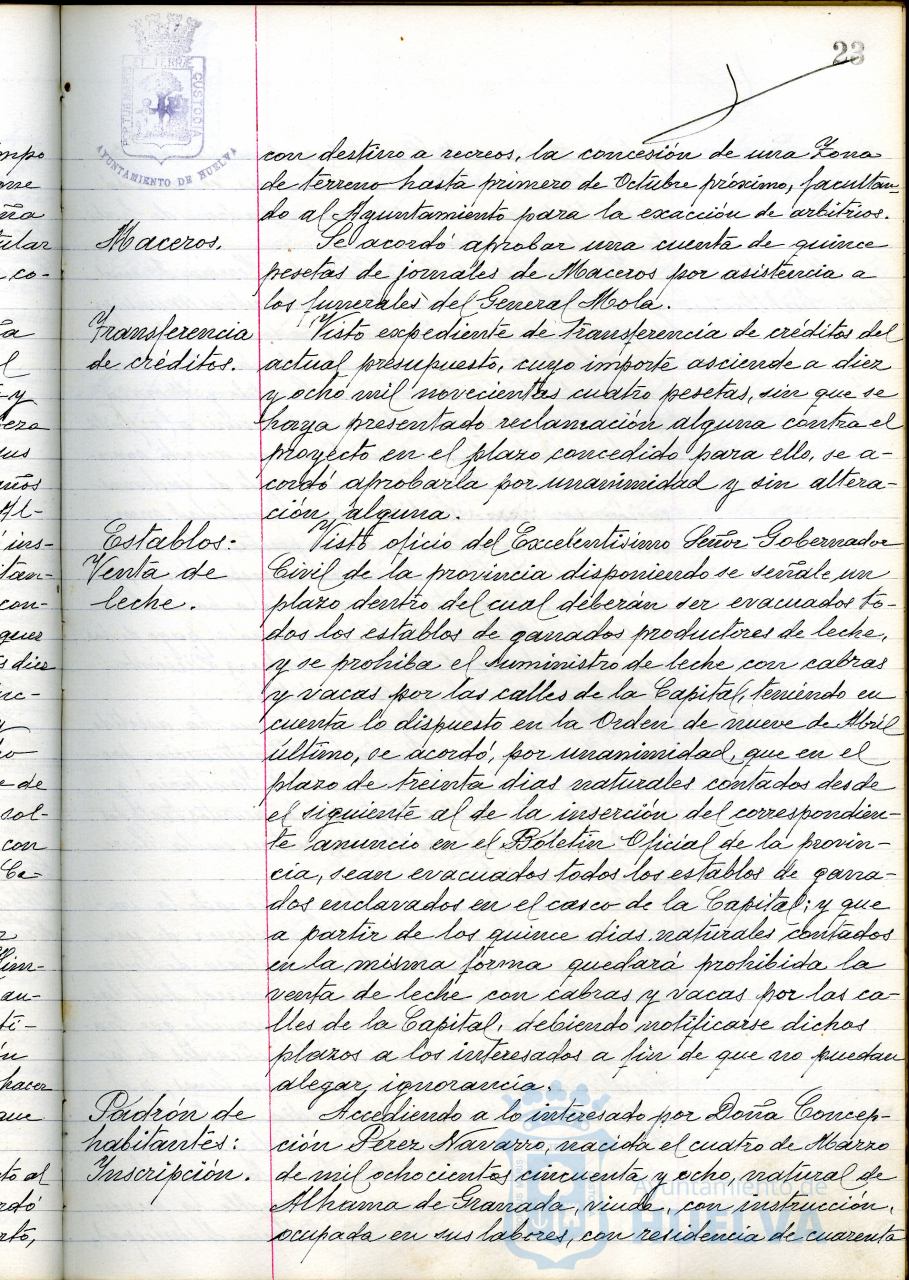 23
PORTUS MARIS ET TERRÆ CUSTODIA
AYUNTAMIENTO DE HUELVA
con destino a recreos, la concesión de una Zona
de terreno hasta primero de Octubre próximo, facultan-
do al Ayuntamiento para la exacción de arbitrios.
Maceros.
Se acordó aprobar una cuenta de quince
pesetas de jornales de Maceros por asistencia a
los funerales del General Mola.
Transferencia
de créditos.
Visto expediente de transferencia de créditos del
actual presupuesto, cuyo importe asciende a diez
y ocho mil novecientas cuatro pesetas, sin que se
haya presentado reclamación alguna contra el
proyecto en el plazo concedido para ello, se a-
cordó aprobarla por unanimidad y sin altera-
ción alguna.
Establos:
Venta de
leche.
Visto oficio del Excelentisimo Señor Gobernador
Civil de la provincia disponiendo se señale un
plazo dentro del cual deberán ser evacuados to-
dos los establos de ganados productores de leche,
y se prohiba el suministro de leche con cabras
y vacas por las calles de la Capital, teniendo en
cuenta lo dispuesto en la Orden de nueve de Abril
último, se acordó, por unanimidad, que en el
plazo de treinta dias naturales contados desde
el siguiente al de la inserción del correspondien-
te anuncio en el Boletin Oficial de la provin-
cia, sean evacuados todos los establos de gana-
dos enclavados en el casco de la Capital; y que
a partir de los quince dias naturales contados
en la misma forma quedará prohibida la
venta de leche con cabras y vacas por las ca-
lles de la Capital, debiendo notificarse dichos
plazos a los interesados a fin de que no puedan
alegar ignorancia.
Padrón de
habitantes:
Inscripción.
Accediendo a lo interesado por Doña Concep-
ción Perez Navarro, nacida el cuatro de Marzo
de mil ochocientos cincuenta y ocho, natural de
Alhama de Granada, viuda, con instrucción,
ocupada en sus labores, con residencia de cuarenta
Ayuntamiento de
HUELVA